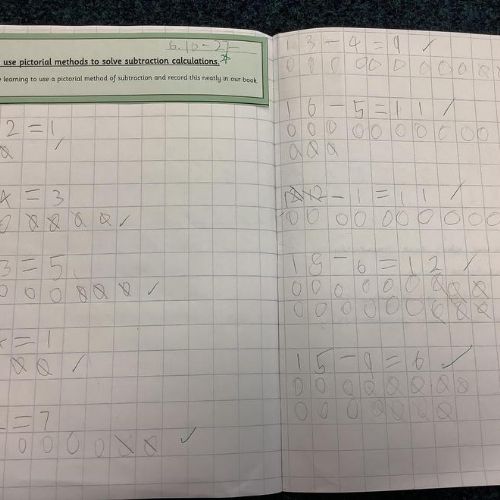 6.10-21
use pictorial methods to solve subtraction calculations.
learning to use a pictorial method of subtraction and record this neatly in our book.
2 = 1
= 3
3 = 5
= 1
= 7
13 - 4 = 9
16 - 5 = 11
12 - 1 = 11
18 - 6 = 12
15 - 9 = 6